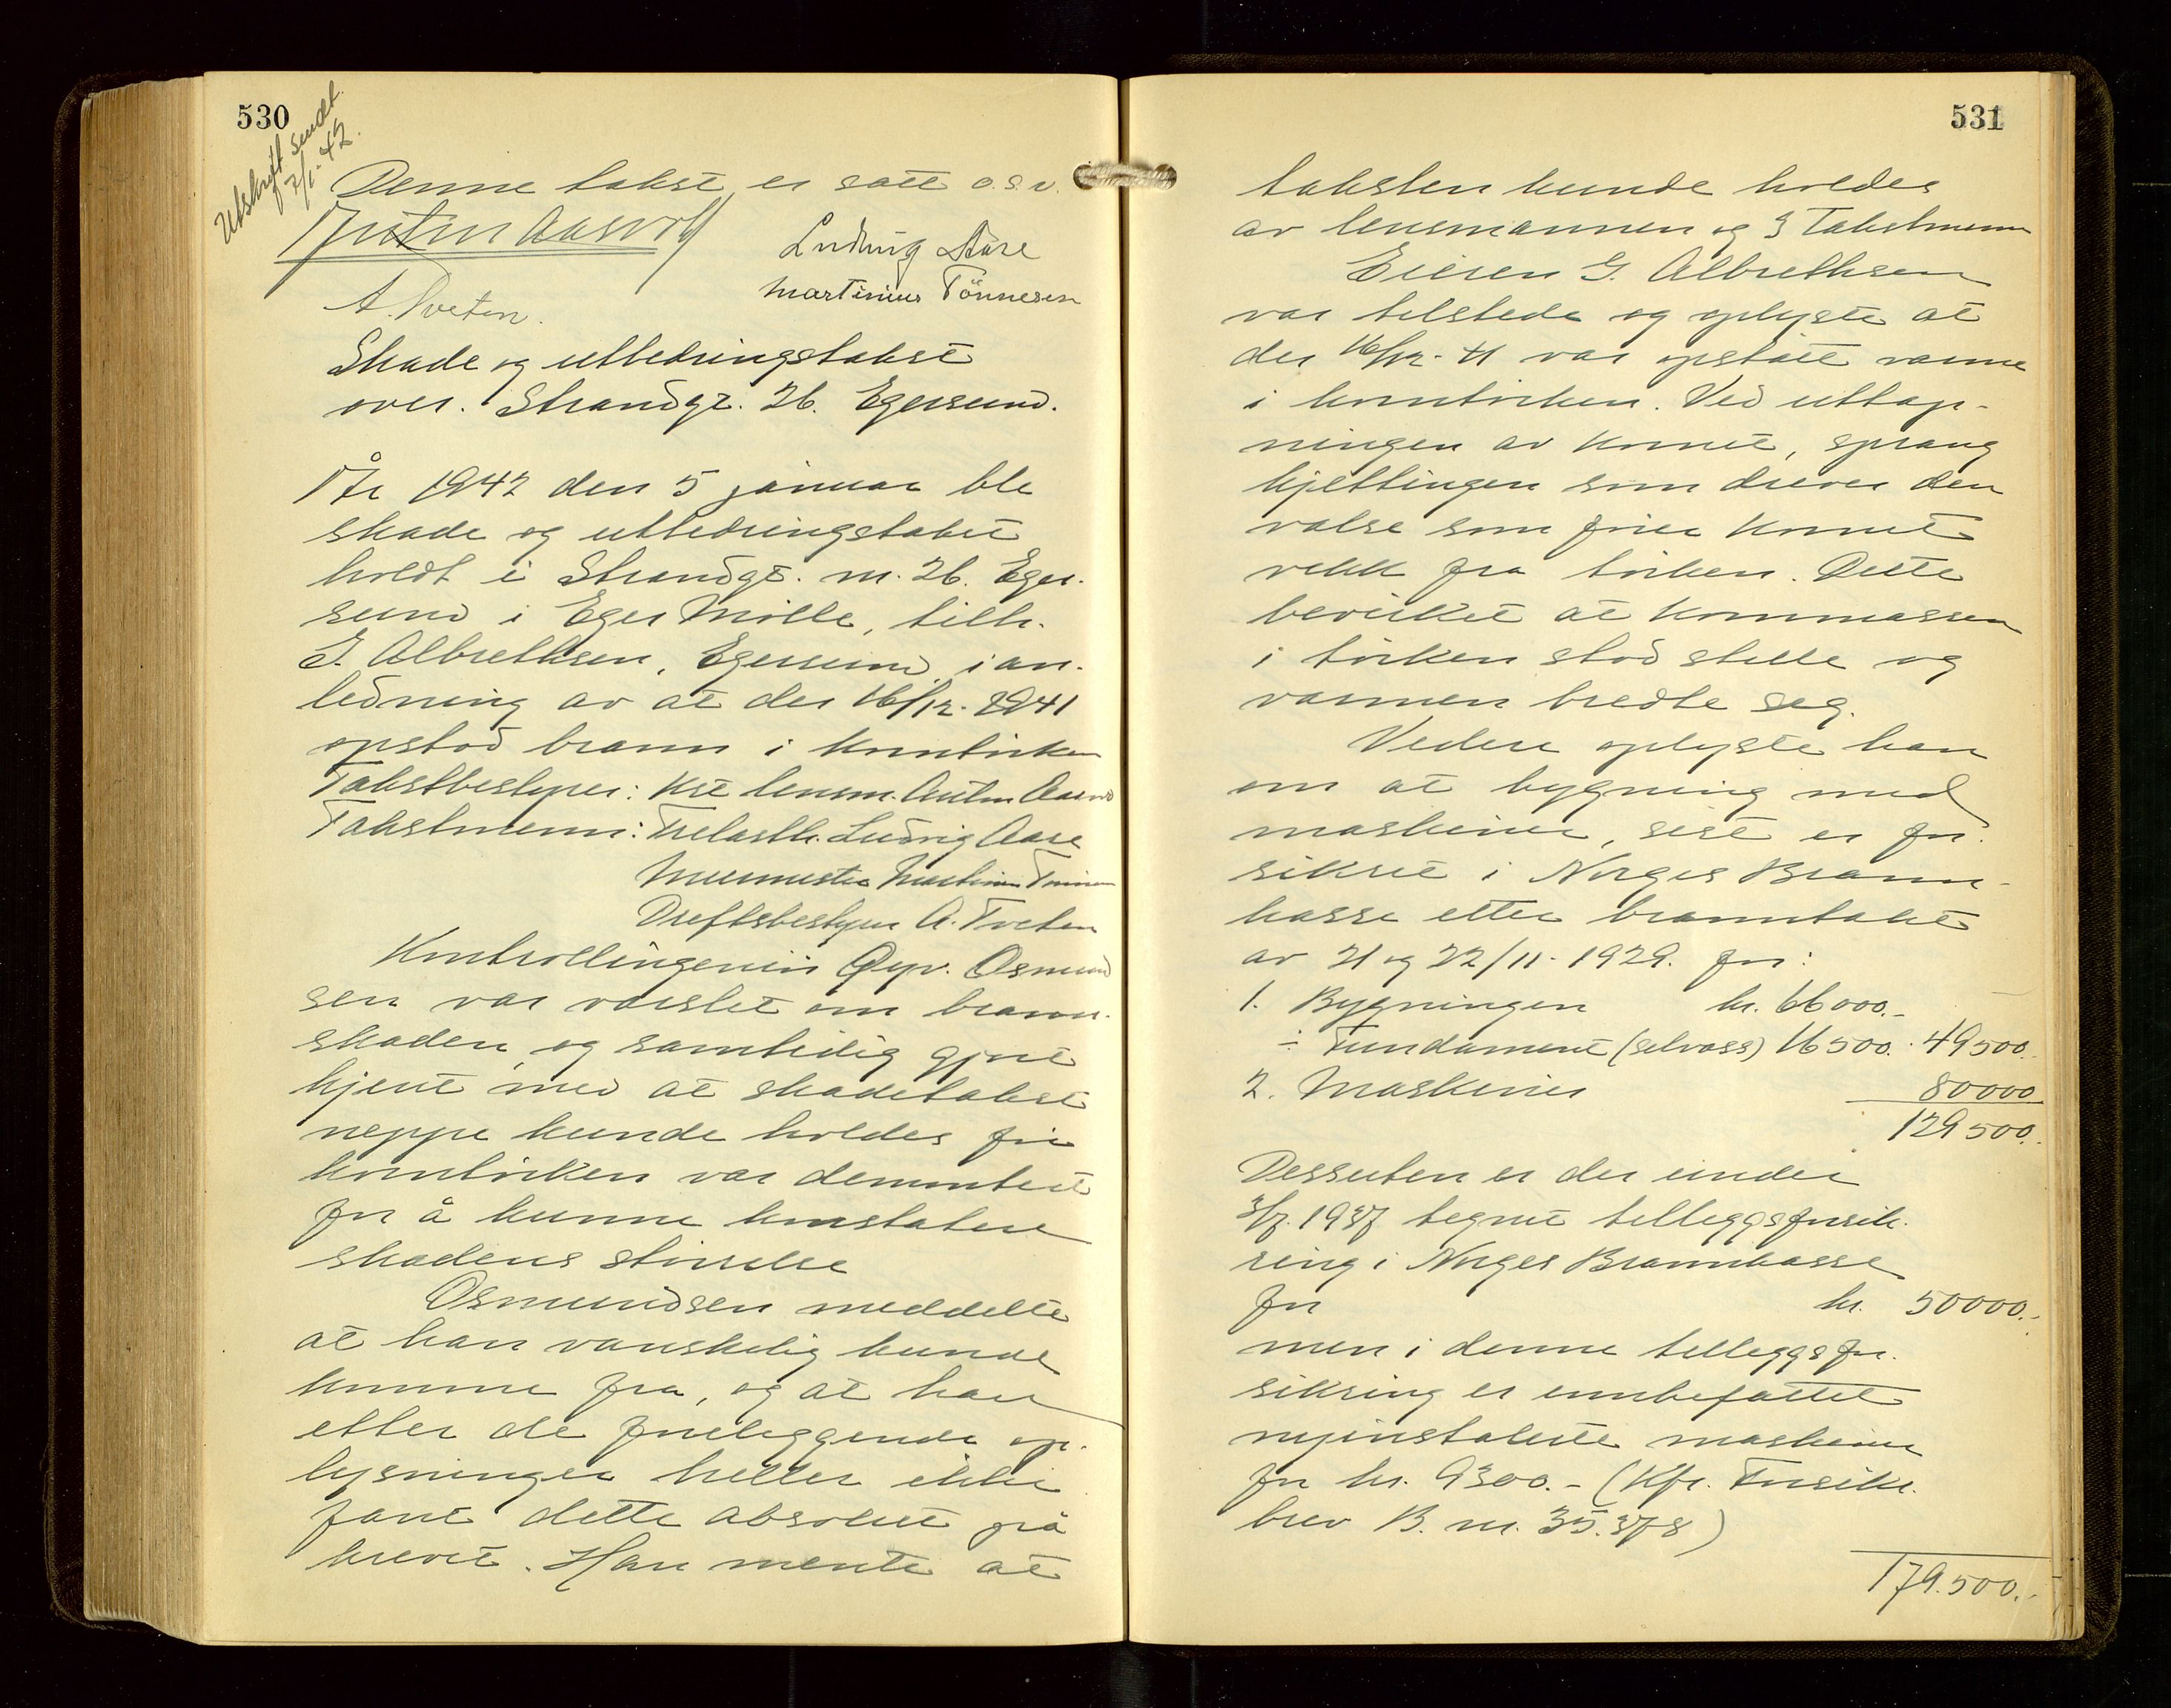 530
Utskrift sendt
7/1-42.
Denne takst er satt o.s.v.
Ludvig Aase
Martinius Tönnesen
A. Tveten.
Skade og utbedringstakst
over. Strandgt. 26. Egersund.
År 1942 den 5 januar ble
skade og utbedringstakst
holdt i Strandgt. nr. 26. Eger-
sund i Eger Mølle, tilh.
G. Albrethsen, Egersund i an-
ledning av at der 16/12-1941
opstod brann i korntørken
Takstbestyrer: Kst lensm.
Takstmenn: Trelasth. Ludvig Aase
Murmester Martinius Tønnesen
Driftsbestyrer A. Tveten
Kontrollingeniør Osmund
sen var varslet om brann-
skaden, og samtidig gjort
kjent med at skadetakst
neppe kunde holdes før
korntørken var demontert
for å kunne konstatere
skadens størrelse
Osmundsen meddelte
at han vanskelig kunde
komme fra, og at han
etter de foreliggende op-
lysninger heller ikke
fant dette absolutt på
krevet. Han mente at
531
taksten kunde holdes
av lensmannen og 3 Takstmenn
Eieren G. Albrethsen
var tilstede og oplyste at
der 16/12-41 var opstått varme
i korntørken. Ved uttap-
ningen av kornet, sprang
kjettingen som drever den
valse som fører kornet
vekk fra tørken. Dette
bevirket at kornmassen
i tørken stod stille og
varmen bredte seg.
Videre oplyste han
om at bygning med
maskiner, sist er for-
sikret i Norges Brann-
kasse etter branntakst
av 21 og 22/11-1929. for:
1. Bygningen kr. 66000.-
÷ Fundament (selvass) 16500. 49500.
2. Maskiner 80000
129500.
Dessuten er der under
3/7. 1937 tegnet tilleggsforsik-
ring i Norges Brannkasse
for kr. 50000.-
men i denne tilleggsfor-
sikring er innbefattet
nyinstalerte maskiner
for kr. 9300.- (Kfr. Forsikr.
brev B. nr. 35.378)
179.500.-